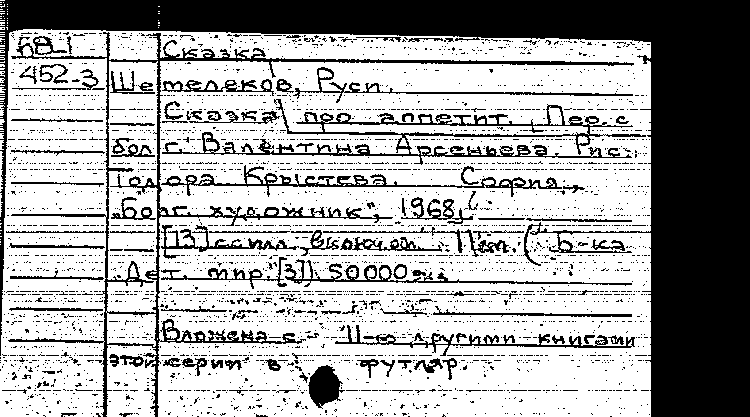 68-1 Сказка
452-3 Шетелеков, Руси.
Сказка про аппетит. Пер. с
болг. Валентина Арсеньева. Рис.
Тодора Крыстева. София,
"Болг. художник", 1968,
[13]с. илл., включ. обл. 11 см. (Б-ка
"Дет. мир". [3]). 50000 экз.
Вложена с 11-ю другими книгами
этой серии в футляр.